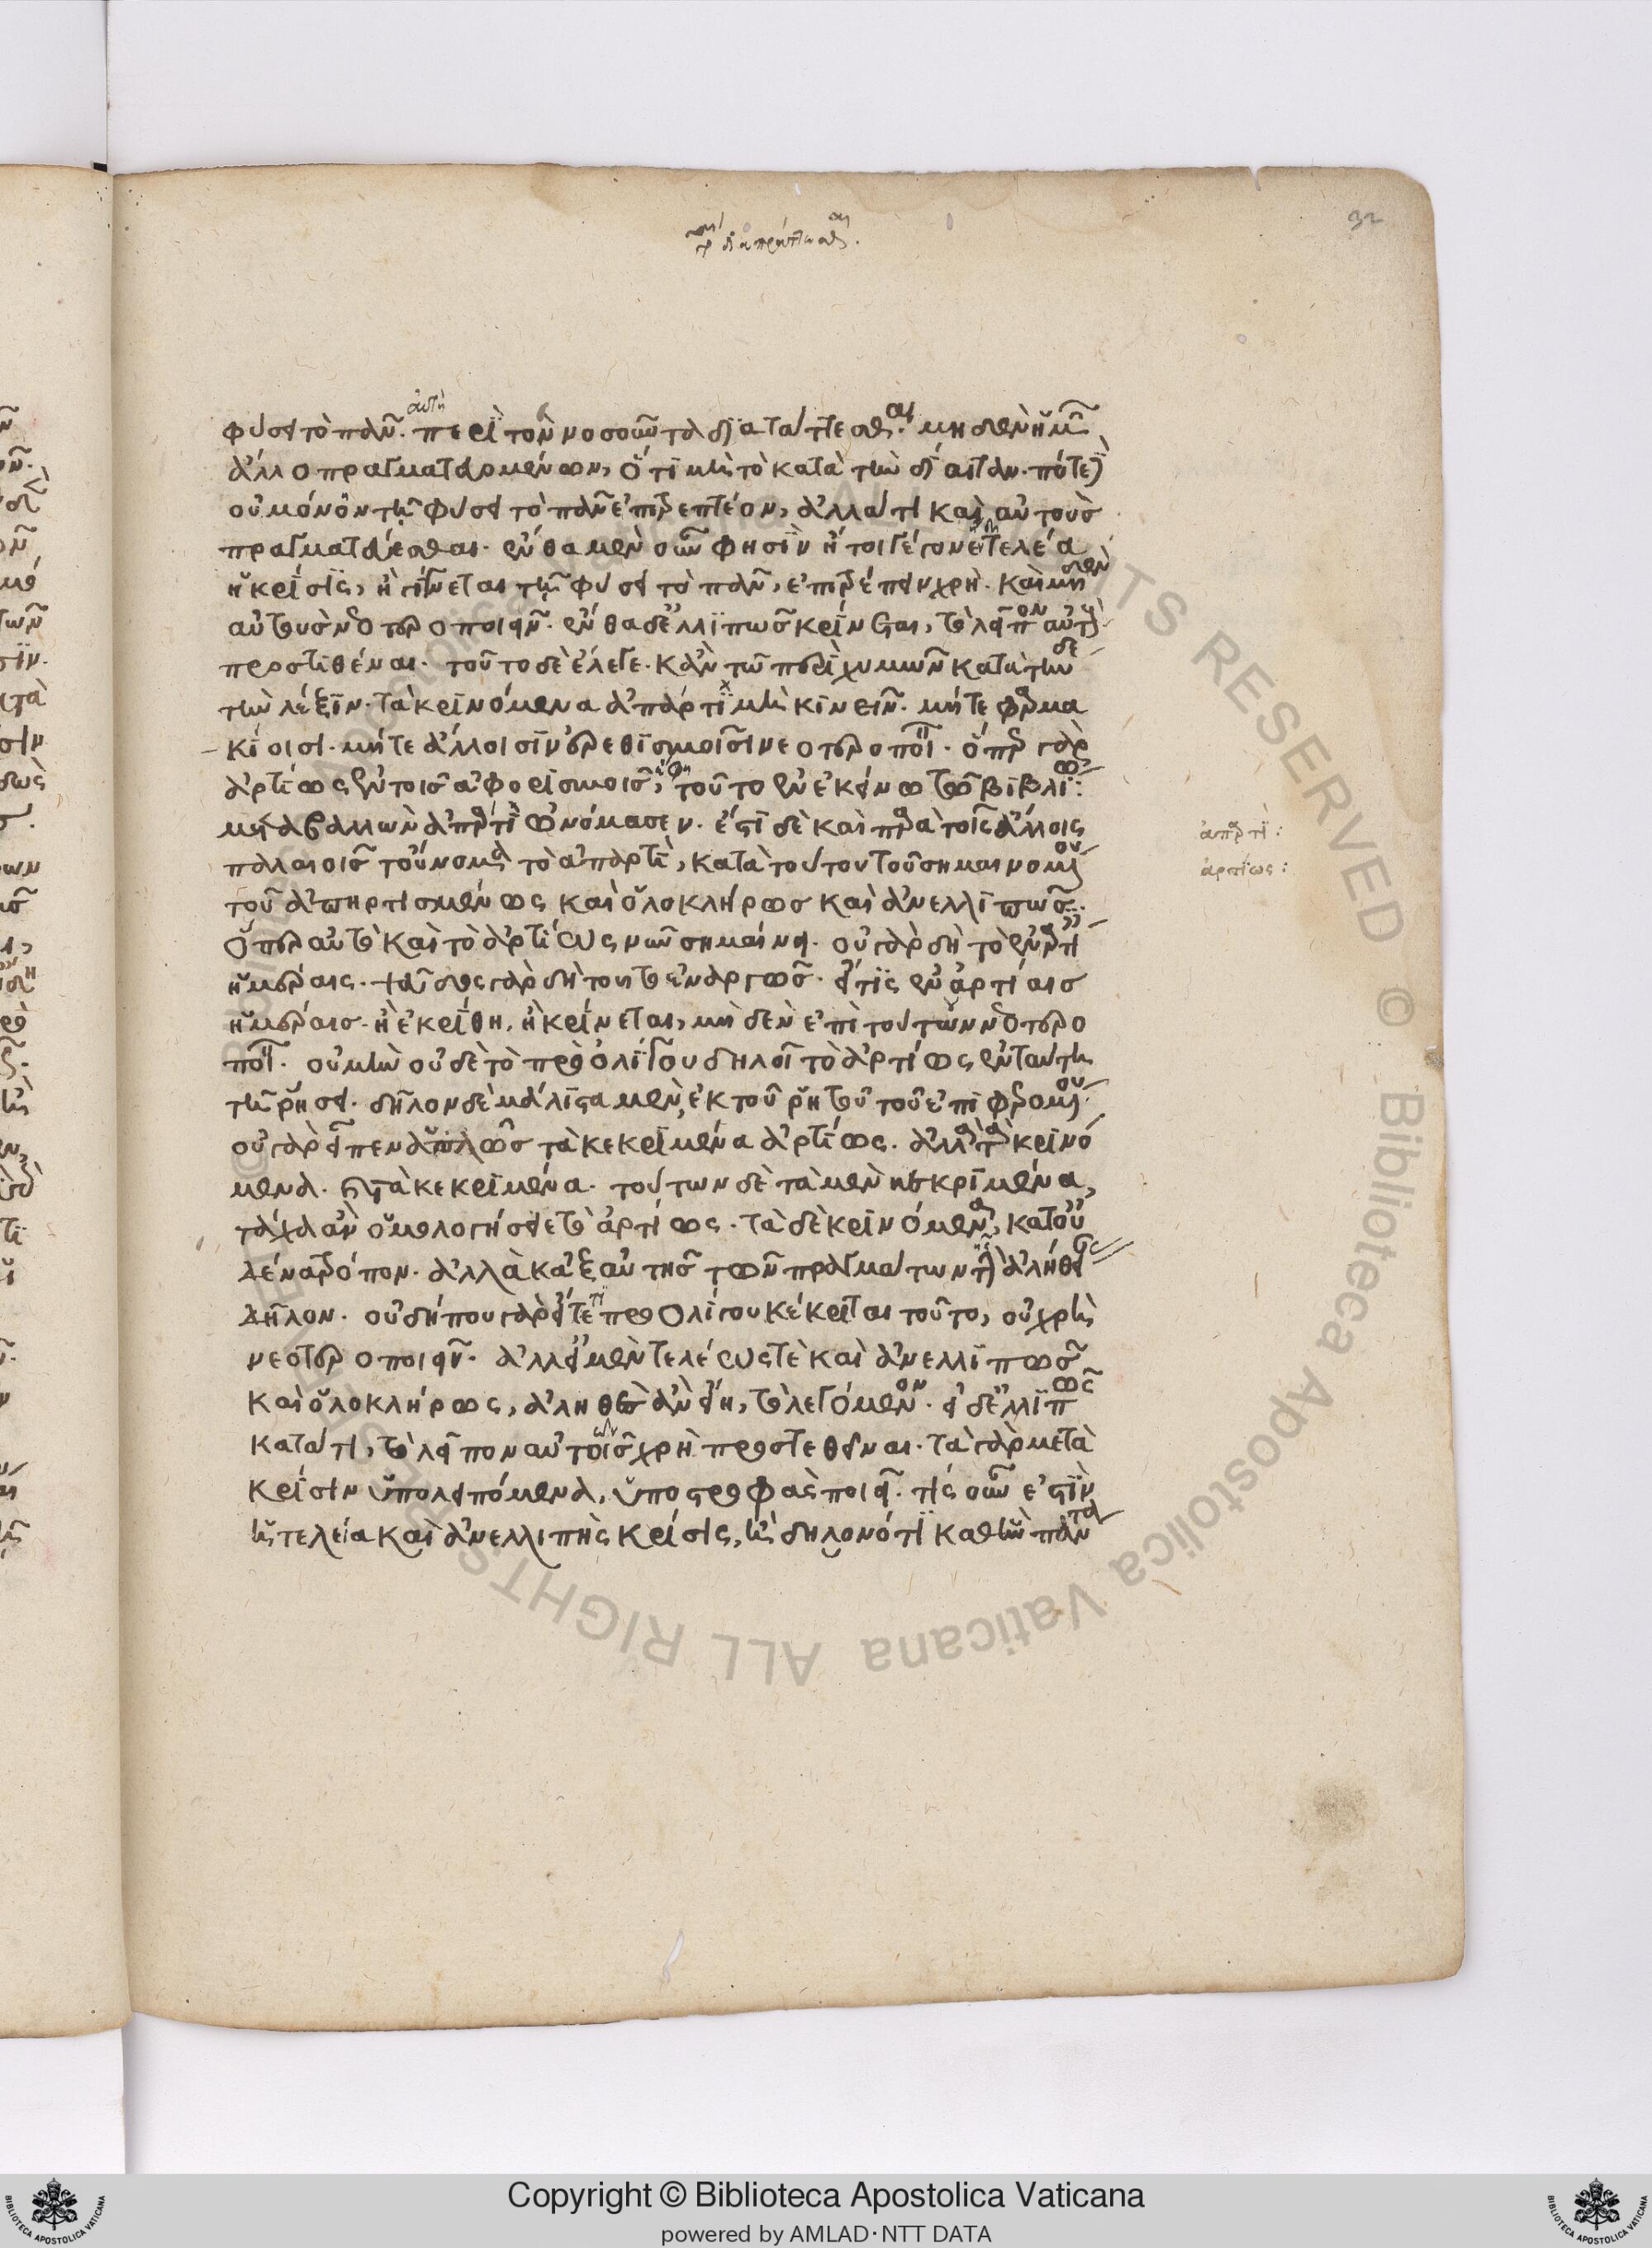 32
φύσει τὸ πᾶν. αὐτὴ περὶ τὸν νοσοῦντα διαταύττεσθαι. μηδὲν ἡμῶν
ἄλλο πραγματευομένων, ὅτι μὴ τὸ κατὰ τὴν δίαιταν. πότε δὲ
οὐ μόνον τῇ φύσει τὸ πᾶν ἐπιτρεπτέον, ἀλλά τι καὶ αὐτοὺς
πραγματεύεσθαι. ἔνθα μὲν οὖν φησὶν ἤτοι γέγονεν ἤδη τελεία
ἡ κρίσις, ἢ γίνεται τῇ φύσει τὸ πᾶν, ἐπιτρέπειν χρὴ. καὶ μηδὲν
αὐτοὺς νεοτεροποιεῖν. ἔνθα δ' ἐλλιπῶς κρίνεται, τὸ λεῖπον αὐτοὺς
προστιθέναι. τοῦτο δὲ ἔλεγε. κἀν τῷ περὶ χυμῶν κατὰ τήνδε
τὴν λέξιν. τὰ κρινόμενα ἀπάρτι μὴ κινεῖν. μήτε φαρμα
κίοισι. μήτε ἄλλοισιν ἐρεθισμοῖσι νεοτεροποιεῖν. ὅπερ γὰρ
ἀρτίως ἐν τοῖς ἀφορισμοῖς ἔφη, τοῦτο ἐν ἐκείνῳ τῷ βιβλίῳ:
μεταβαλλὼν ἀπαρτὶ ὠνόμασεν. ἔστι δὲ καὶ παρὰ τοῖς ἄλλοις
παλαιοῖς τοὔνομα τὸ ἀπαρτὶ, κατὰ τούτου τοῦ σημαινομένου
τοῦ ἀπηρτισμένως καὶ ὁλοκλήρως καὶ ἀνελλιπῶς.
ὅπερ αὐτὸ καὶ τὸ ἀρτίως νῦν σημαίνει. οὐ γὰρ δὴ τὸ ἐν ἄρτι
ἡμέραις. ψεῦδος γὰρ δὴ τοῦτο ἐναργῶς. εἴ τις ἐν ἀρτίαις
ἡμέραις. ἢ ἐκρίθη, ἢ κρίνεται, μηδὲν ἐπὶ τούτων νεοτερο
ποιεῖν. οὐ μὴν οὐδὲ τὸ πρὸ ὀλίγου δηλοῖ τὸ ἀρτίως ἐν ταύτῃ
τῇ ῥήσει. δῆλον δὲ μάλιστα μὲν, ἐκ τοῦ ῥητοῦ τοῦ ἐπιφερομένου
οὐ γὰρ εἶπεν ἁπλῶς τὰ κεκριμένα ἀρτίως. ἀλλὰ τὰ κρινό
μενα. καὶ τὰ κεκριμένα. τούτων δὲ τὰ μὲν κεκριμένα,
τάχα ἂν ὁμολογήσειε τὸ ἀρτίως. τὰ δὲ κρινόμενα, κατ' οὐ
δένα τρόπον. ἀλλὰ κἀξ αὐτῆς τῶν πραγμάτων τῆς ἀληθείας
δῆλον. οὐ δήπου γὰρ εἴτε τι πρὸ ὀλίγου κέκριται τοῦτο, οὐ χρὴ
νεοτεροποιεῖν. ἀλλ' εἰ μὲν τελέως τὲ καὶ ἀνελλιπῶς
καὶ ὁλοκλήρως, ἀληθὲς ἂν εἴη, τὸ λεγόμενον. εἰ δ' ἐλλιπῶς
κατά τι, τὸ λεῖπον αὐτοῖς χρὴ προστεθῆναι. τὰ γὰρ μετὰ
κρίσιν ὑπολειπόμενα, ὑποστροφὰς ποιεῖ. τίς οὖν ἐστὶν
ἡ τελεία καὶ ἀνελλιπὴς κρίσις, ἢ δηλονότι καθ' ἣν πάντα
ἀπαρτὶ:
ἀρτίως:
Copyright © Biblioteca Apostolica Vaticana
powered by AMLAD·NTT DATA